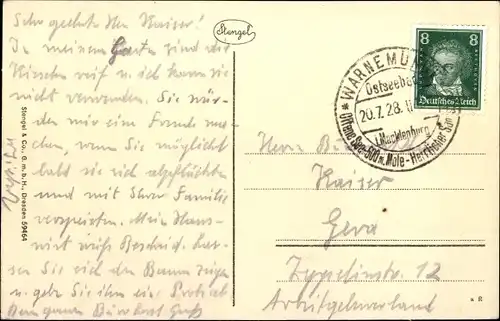 Sehr geehrter Herr Kaiser!
In meinem Garten sind die
Kirschen reif u. ich kann sie
nicht verwenden. Sie wür-
den mir eine Freude ma-
chen, wenn Sie möglichst
bald sie sich abpflückten
und mit Ihrer Familie
verspeisten. Mein Haus-
wirt weiß Bescheid. Las-
sen Sie sich den Baum zeigen
u. geben Sie ihm eine
Dem ganzen Büro best. Gruß
Stengel & Co., G. m. b. H., Dresden 59464
Stengel
WARNEMÜN
Ostseebad
20.7.28.
(Mecklenburg)
Offene See-500 m. Mole-Herrlicher
8 8
Deutsches Reich
Herrn
Kaiser
Gera
Zeppelinstr. 12
Arbeitgeberverband